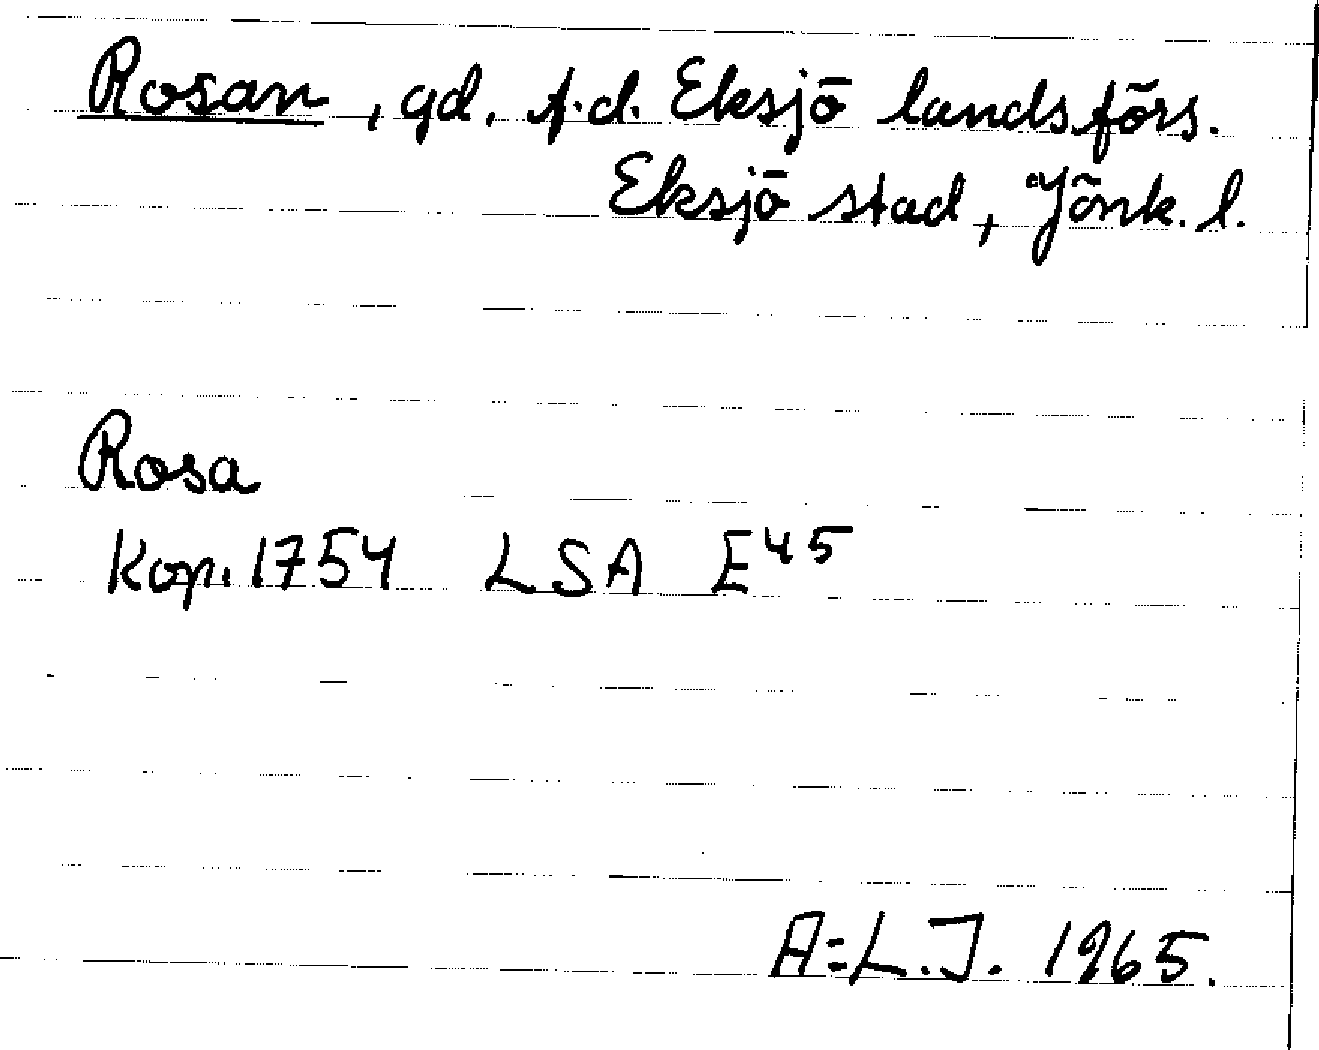 Rosan, gd, f.d. Eksjö landsförs.
Eksjö stad, Jönk. l.
Rosa
Kop. 1754 LSA E45
A=L.J. 1965.